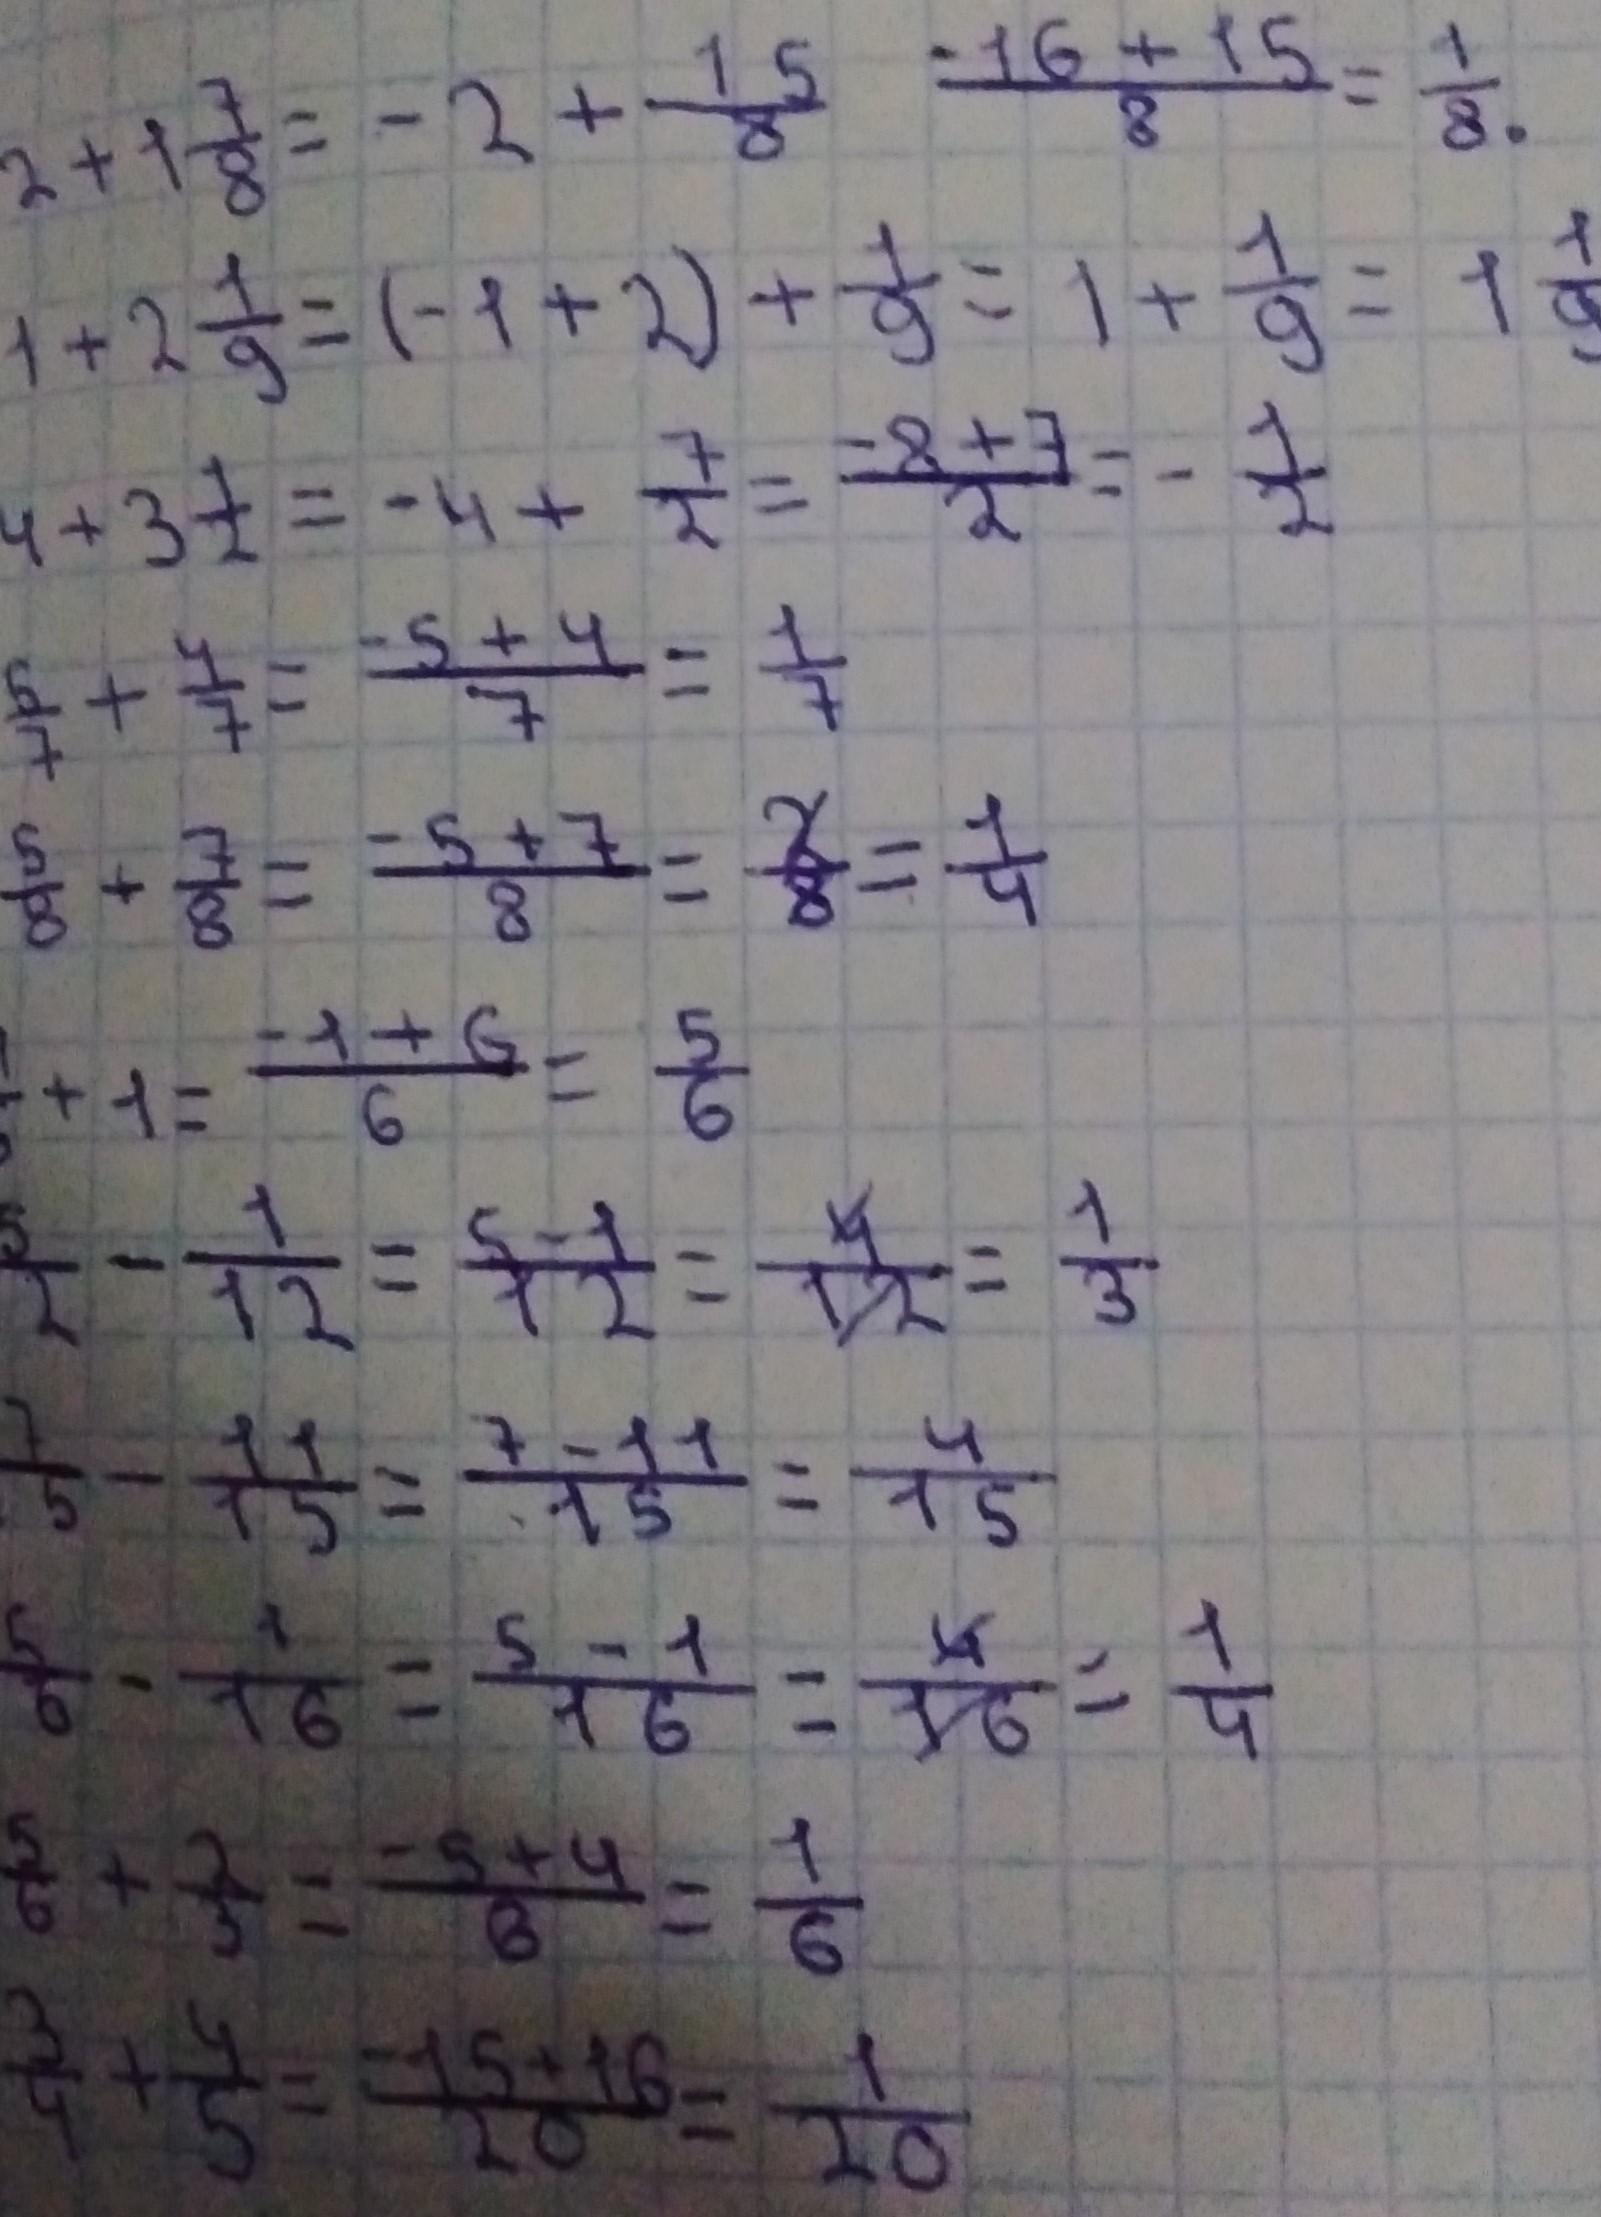 2 + 1 7/8 = -2 + 15/8 (-16 + 15)/8 = 1/8.
1 + 2 1/9 = (-1 + 2) + 1/9 = 1 + 1/9 = 1 1/9
4 + 3 1/2 = -4 + 7/2 = (-8 + 7)/2 = - 1/2
5/7 + 4/7 = (-5 + 4)/7 = 1/7
5/8 + 7/8 = (-5 + 7)/8 = 2/8 = 1/4
+ 1 = (-1 + 6)/6 = 5/6
5/2 - 1/12 = (5 - 1)/12 = 4/12 = 1/3
7/5 - 11/15 = (7 - 11)/15 = 4/15
5/6 - 1/16 = (5 - 1)/16 = 4/16 = 1/4
5/6 + 2/3 = (-5 + 4)/6 = 1/6
3/4 + 4/5 = (-15 + 16)/20 = 1/20